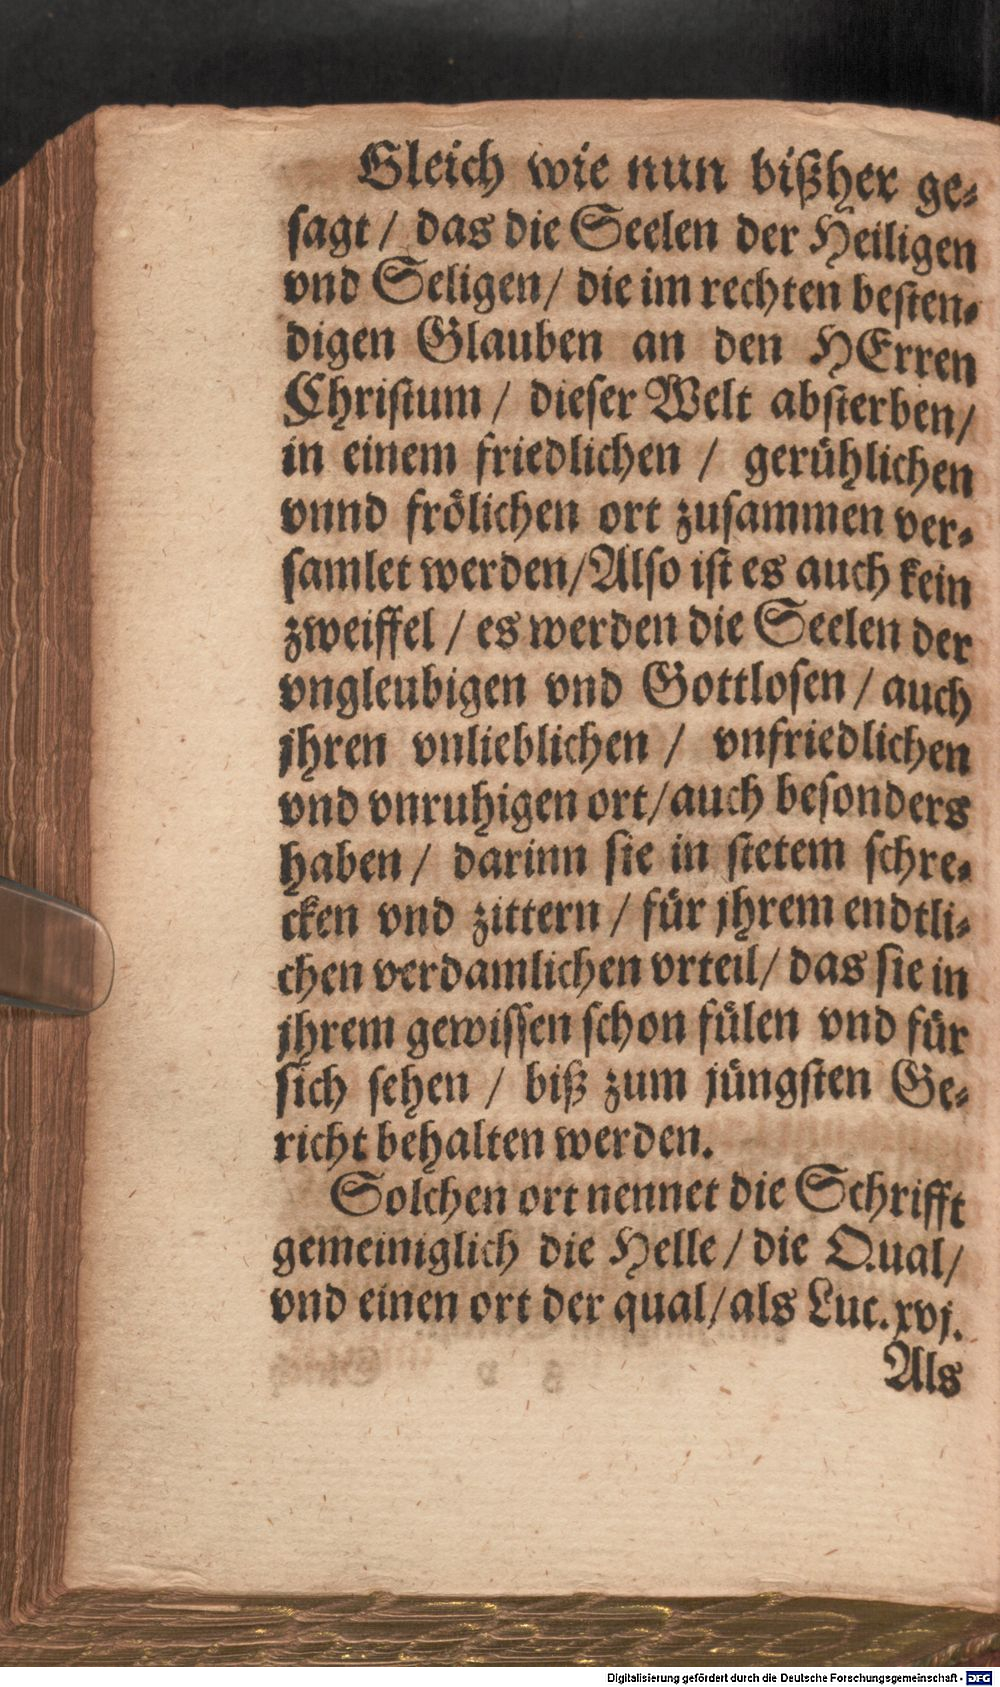 Gleich wie nun bißher ge⸗
sagt / das die Seelen der Heiligen
vnd Seligen / die im rechten besten⸗
digen Glauben an den HErren
Christum / dieser Welt absterben /
in einem friedlichen / gerühlichen
vnnd frölichen ort zusammen ver⸗
samlet werden / Also ist es auch kein
zweiffel / es werden die Seelen der
vngleubigen vnd Gottlosen / auch
jhren vnlieblichen / vnfriedlichen
vnd vnruhigen ort / auch besonders
haben / darinn sie in stetem schre⸗
cken vnd zittern / für jhrem endtli⸗
chen verdamlichen vrteil / das sie in
jhrem gewissen schon fülen vnd für
sich sehen / biß zum jüngsten Ge⸗
richt behalten werden.
Solchen ort nennet die Schrifft
gemeiniglich die Helle / die Qual /
vnd einen ort der qual / als Luc. xvj.
Als
Digitalisierung gefördert durch die Deutsche Forschungsgemeinschaft - DFG